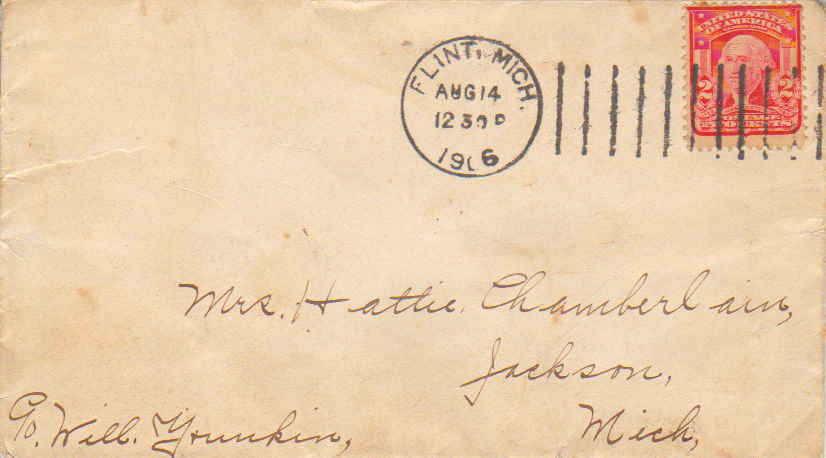 FLINT, MICH.
AUG 14
12 30 P
1906
UNITED STATES
OF AMERICA
2 2
TWO CENTS
Mrs. Hattie Chamberlain,
Jackson,
Mich,
c/o. Will. Younkin,